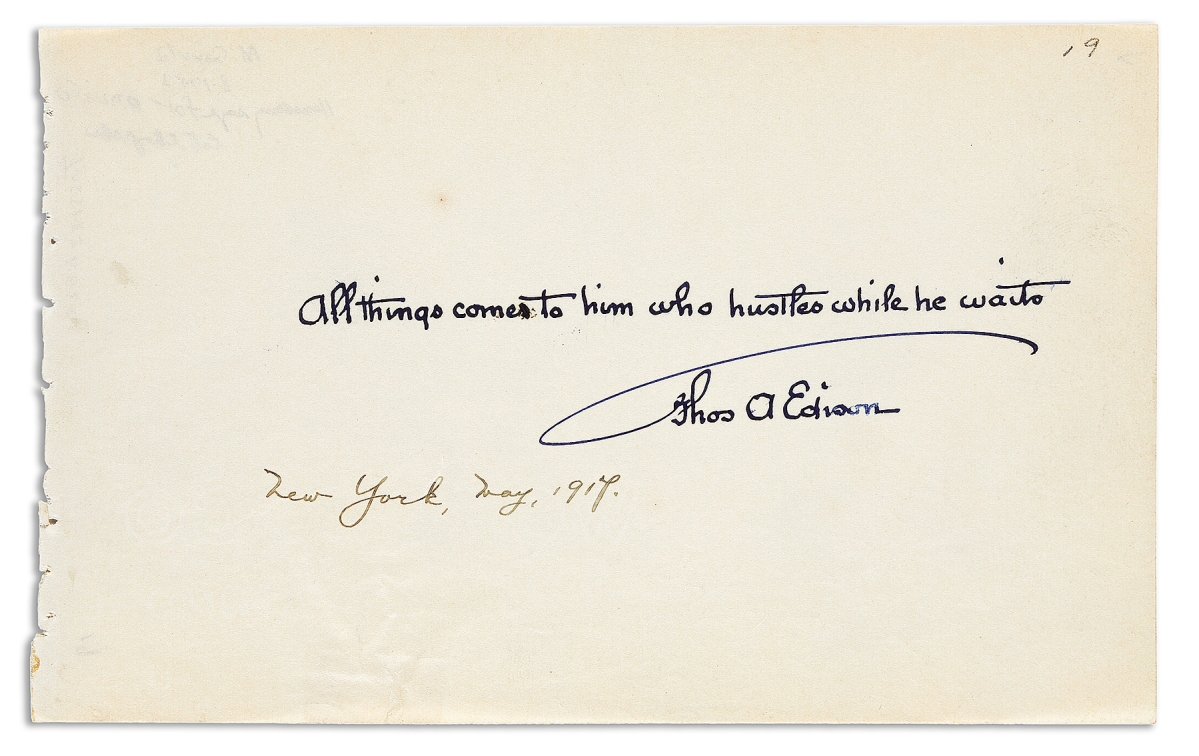 19
All things comes to him who hustles while he waits
Thos A Edison
New York, May, 1917.